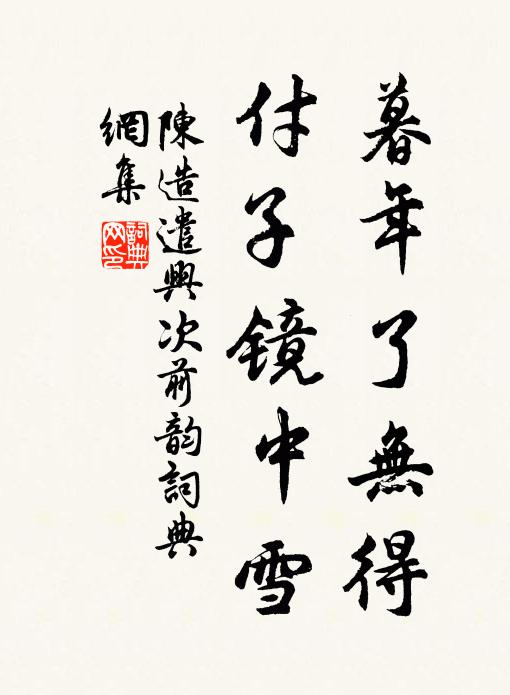 暮年了無得
付子镜中雪
陳造遣興次前韵詞典
網集
詞典
网印